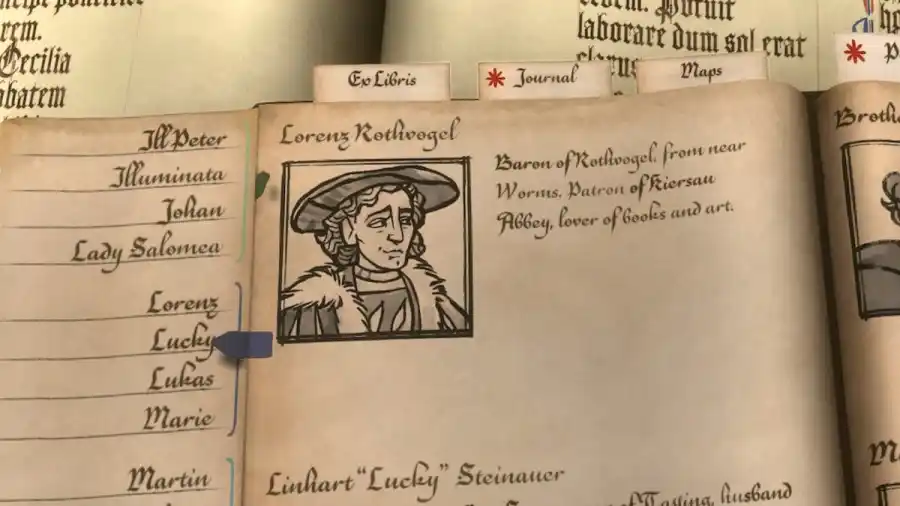 rem.
Cecilia
laborare dum sol erat
Ex Libris
Journal
Maps
Ill Peter
Illuminata
Johan
Lady Salomea
Lorenz
Lucky
Lukas
Marie
Martin
Lorenz Rothvogel
Baron of Rothvogel, from near
Worms. Patron of Kiersau
Abbey, lover of books and art.
Linhart "Lucky" Steinauer
of Tassing, husband